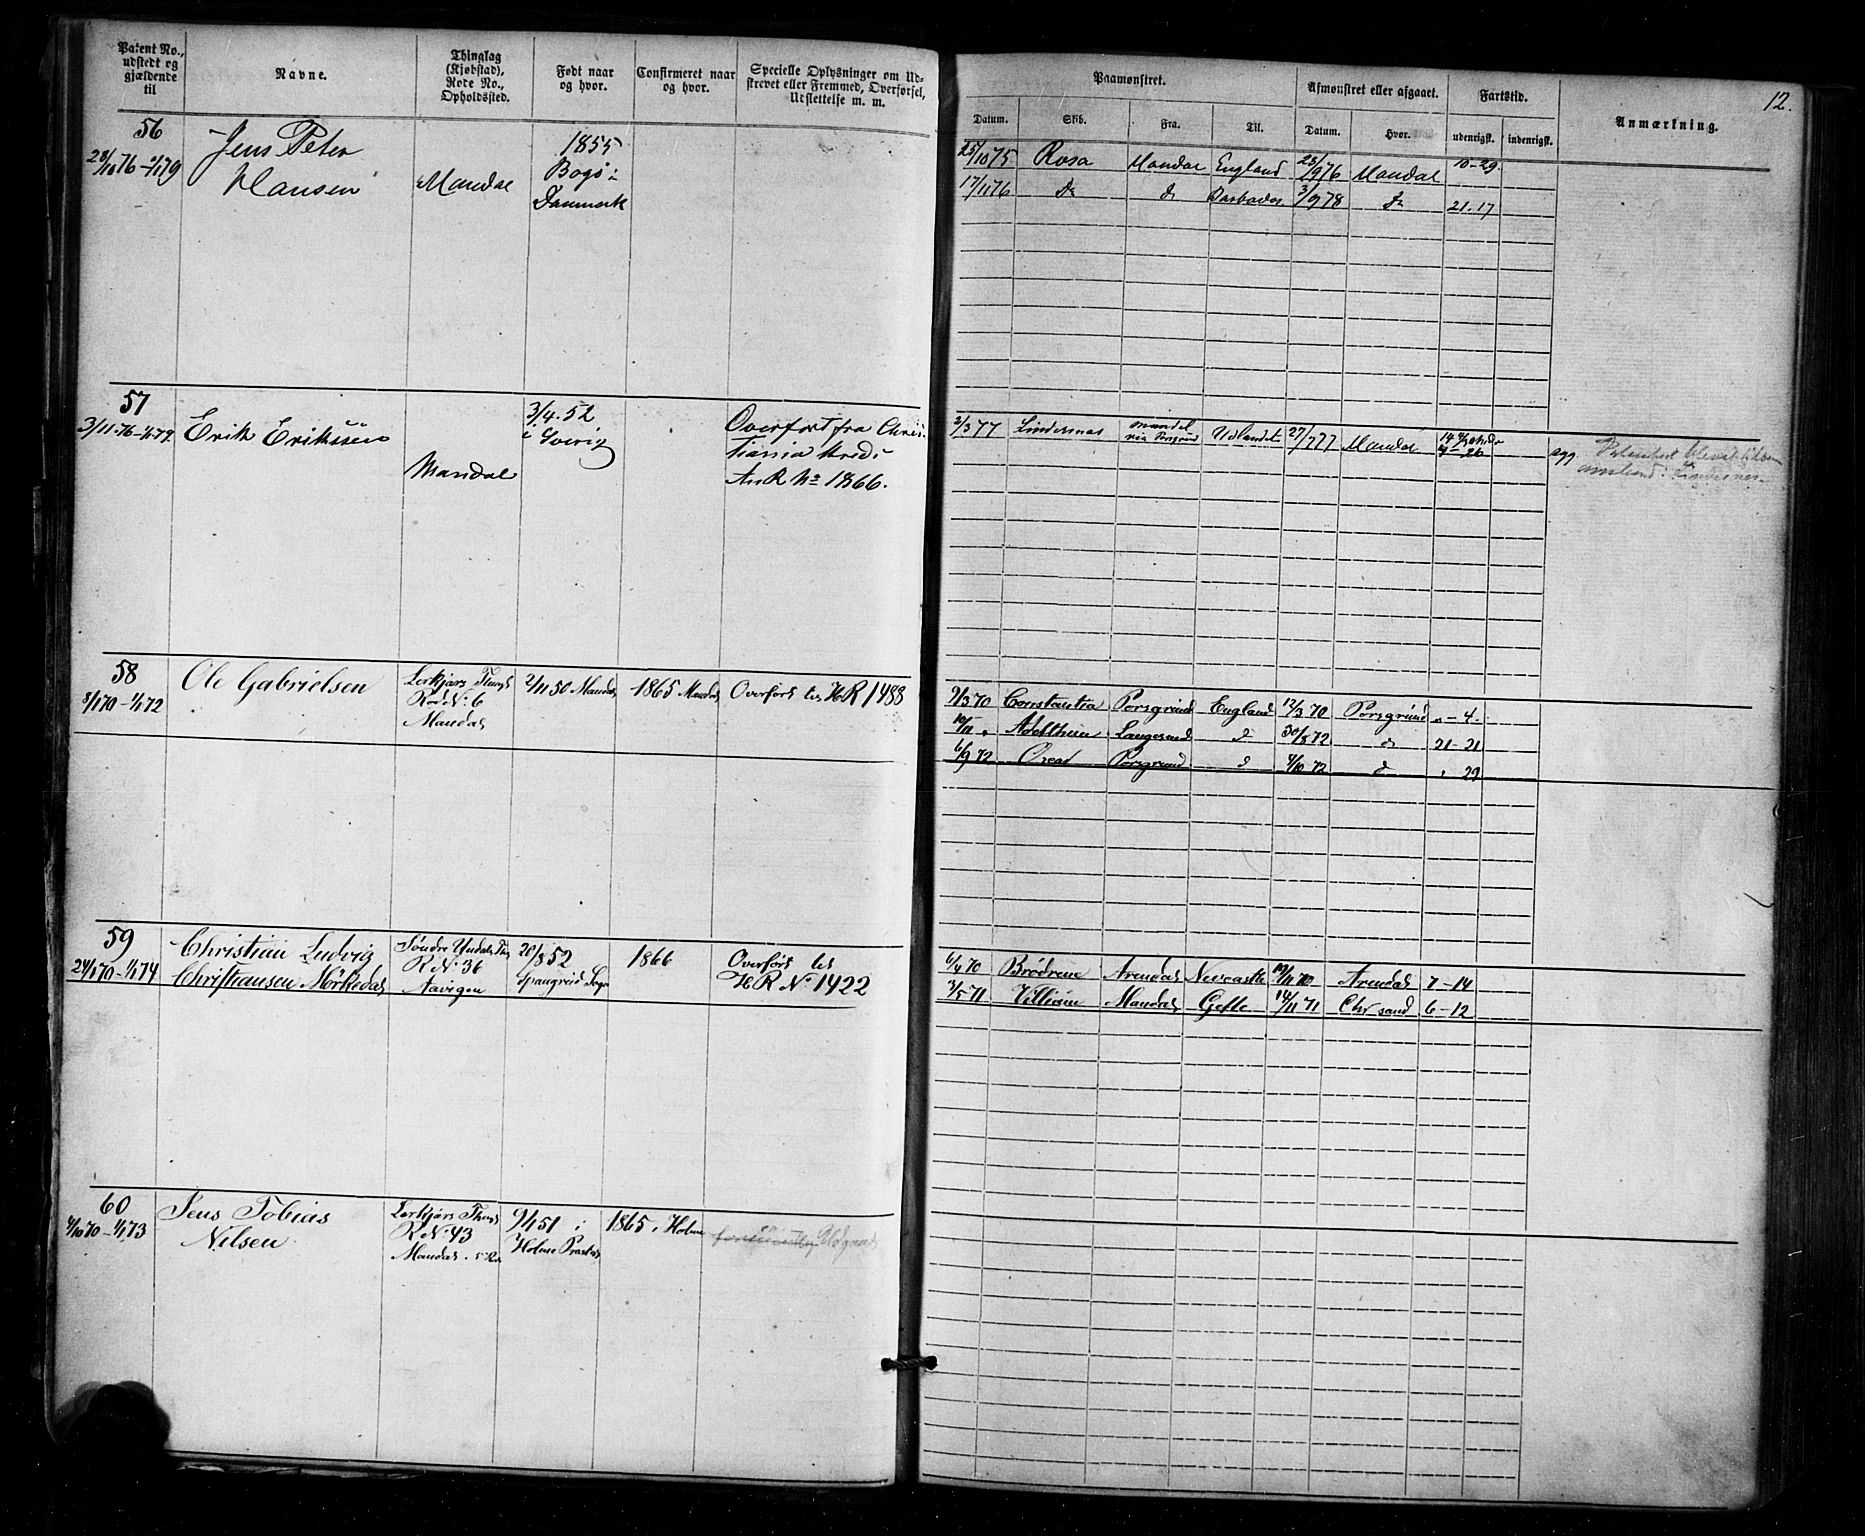 Patent No., udstedt og gjældende til
Navne.
Thinglag (Kjøbstad), Rode No., Opholdssted.
Født naar og hvor.
Confirmeret naar og hvor.
Specielle Oplysninger om Udskrevet eller Fremmed, Overførsel, Udslettelse m. m.
Paamønstret.
Afmønstret eller afgaaet.
Fartstid.
Anmærkning.
12.
Datum. Skib. Fra. Til. Datum. Hvor. udenrigsk. indenrigsk.
56
28/10 76 - 1/1 79
Jens Peter
Hansen
Mandal
1855
Bogö i
Danmark
25/10 75 Rosa Mandal England 28/9 76 Mandal 10-29.
17/11 76 Do do Barbados 3/9 78 Do 21.17
57
3/11.76-1/1 79.
Erik Erikssen
Mandal
3/4.52
i Sverig
Overfort fra Chris-
tiania Kreds
An R No 1866.
2/3 77 Lindesnas Mandal via Porsgrund Udlandet 27/7 77 Mandal
58
8/1 70 - 1/1 72
Ole Gabrielsen
Lerkjærs Thingl
Rod No 6
Mandal
2/11 50 Mandal
1865 Mandal
Overført til HR 1488
9/3 70 Constantia Porsgrund England 12/3 70 Porsgrund " - 4.
10/11 " Langesund d 30/8 72 d 21-21
6/9 72 Oscar Porsgrund d 4/10 72 d " 29
59
24/1 70 - 1/1 74
Christian Ludvig
Christiansen Mörkedal
Søndre Undals Thing
R No 36
Aavigen
20/8 52
Spangreid Sogn
1866
Overført til
HR No 1422
6/4 70 Brödrene Arendal Newcastle 19/11 70 Arendal 7-14
3/5 71 Villiam Mandal Gefle 14/11 71 Chr sand 6-12
60
4/10 70 - 1/1 73
Jens Tobias
Nilsen
Lerkjærs Thingl
R No 43
Mandal
9/1 51 i
Holme Præsteg
1865 i Holme